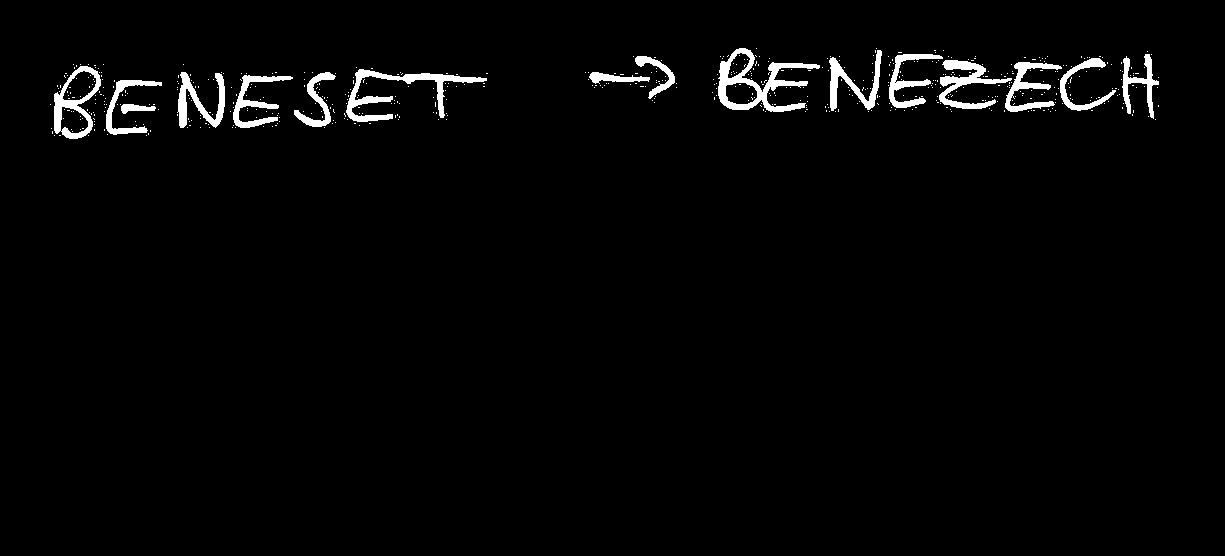 BENESET → BENEZECH